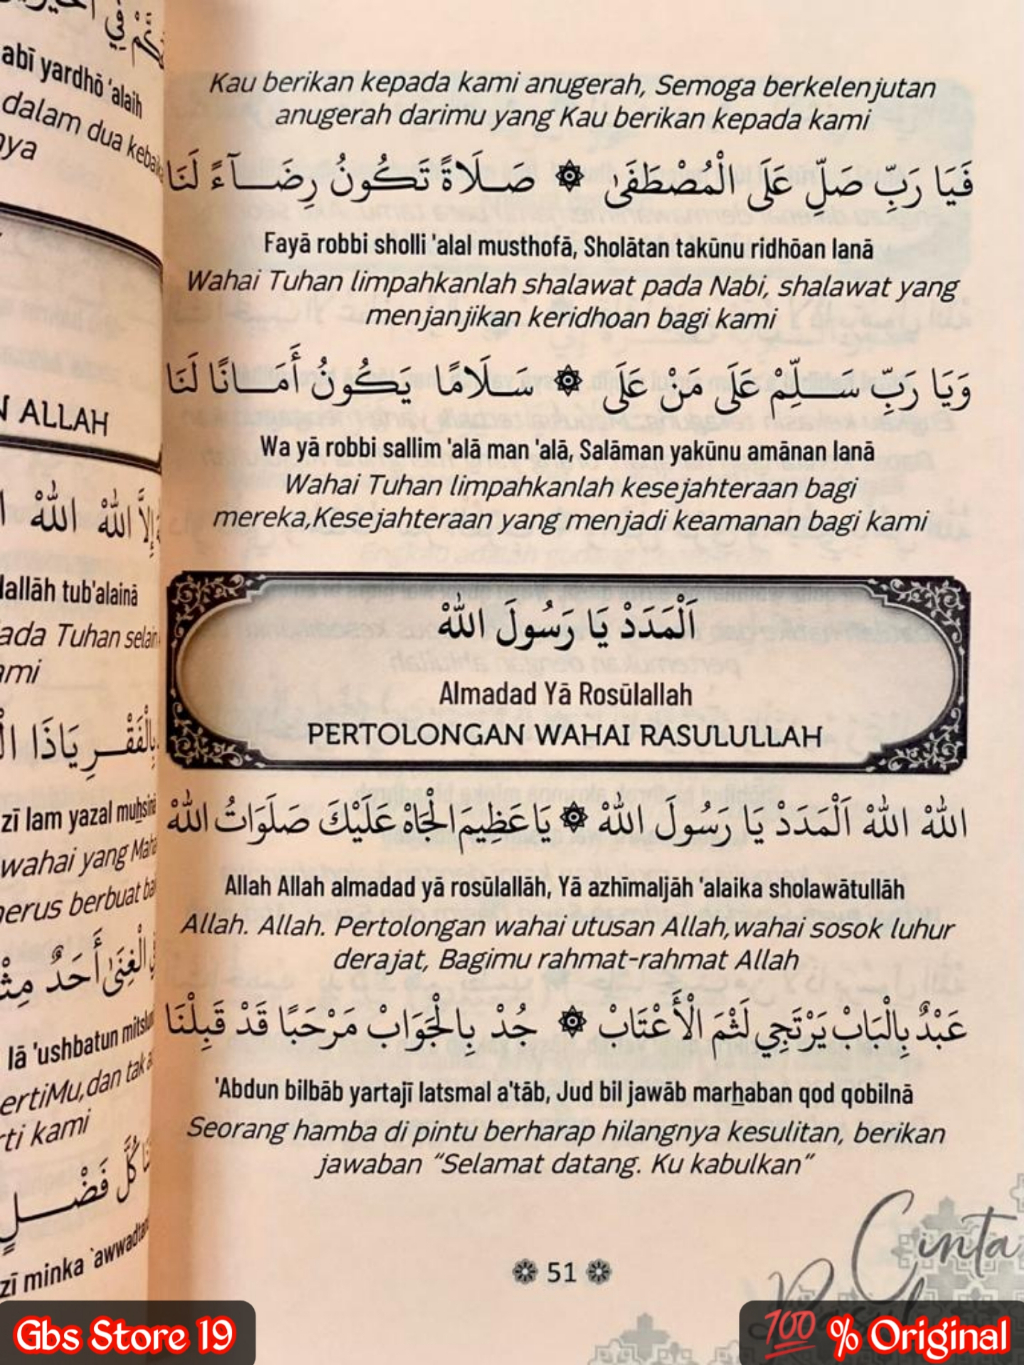 abī yardhō 'alaih
dalam dua
ya
ALLAH
إِلَّا اللهُ اللهُ
lallāh tub'alainā
ada Tuhan selain
ami
بِالْفَقْرِ يَاذَا
zī lam yazal muhsinā
wahai yang Maha
erus berbuat
الْغِنَى أَحَدٌ
lā 'ushbatun mitslu
ertiMu,dan tak
rti kami
كُلُّ فَضْلٍ
zī minka 'awwadtanā
Kau berikan kepada kami anugerah, Semoga berkelenjutan
anugerah darimu yang Kau berikan kepada kami
فَيَا رَبِّ صَلِّ عَلَى الْمُصْطَفَىٰ ۞ صَلَاةً تَكُونُ رِضَآءً لَنَا
Fayā robbi sholli 'alal musthofā, Sholātan takūnu ridhōan lanā
Wahai Tuhan limpahkanlah shalawat pada Nabi, shalawat yang
menjanjikan keridhoan bagi kami
وَيَا رَبِّ سَلِّمْ عَلَى مَنْ عَلَى ۞ سَلَامًا يَكُونُ أَمَانًا لَنَا
Wa yā robbi sallim 'alā man 'alā, Salāman yakūnu amānan lanā
Wahai Tuhan limpahkanlah kesejahteraan bagi
mereka,Kesejahteraan yang menjadi keamanan bagi kami
اَلْمَدَدْ يَا رَسُولَ اللهْ
Almadad Yā Rosūlallah
PERTOLONGAN WAHAI RASULULLAH
اللهْ اللهْ اَلْمَدَدْ يَا رَسُولَ اللهْ ۞ يَاعَظِيمَ الْجَاهْ عَلَيْكَ صَلَوَاتُ اللهْ
Allah Allah almadad yā rosūlallāh, Yā azhīmaljāh 'alaika sholawātullāh
Allah. Allah. Pertolongan wahai utusan Allah,wahai sosok luhur
derajat, Bagimu rahmat-rahmat Allah
عَبْدٌ بِالْبَابْ يَرْتَجِي لَثْمَ الْأَعْتَابْ ۞ جُدْ بِالْجَوَابْ مَرْحَبًا قَدْ قَبِلْنَا
'Abdun bilbāb yartajī latsmal a'tāb, Jud bil jawāb marhaban qod qobilnā
Seorang hamba di pintu berharap hilangnya kesulitan, berikan
jawaban "Selamat datang. Ku kabulkan"
51
Cinta
Gbs Store 19
💯 % Original